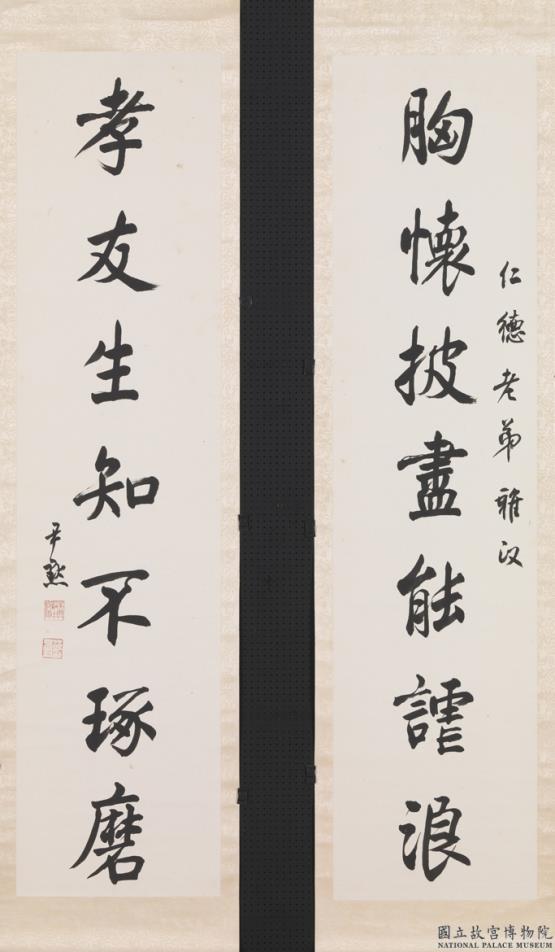 仁德老弟雅政
胸懷披盡能謔浪
孝友生知不琢磨
尹默
國立故宮博物院
NATIONAL PALACE MUSEUM